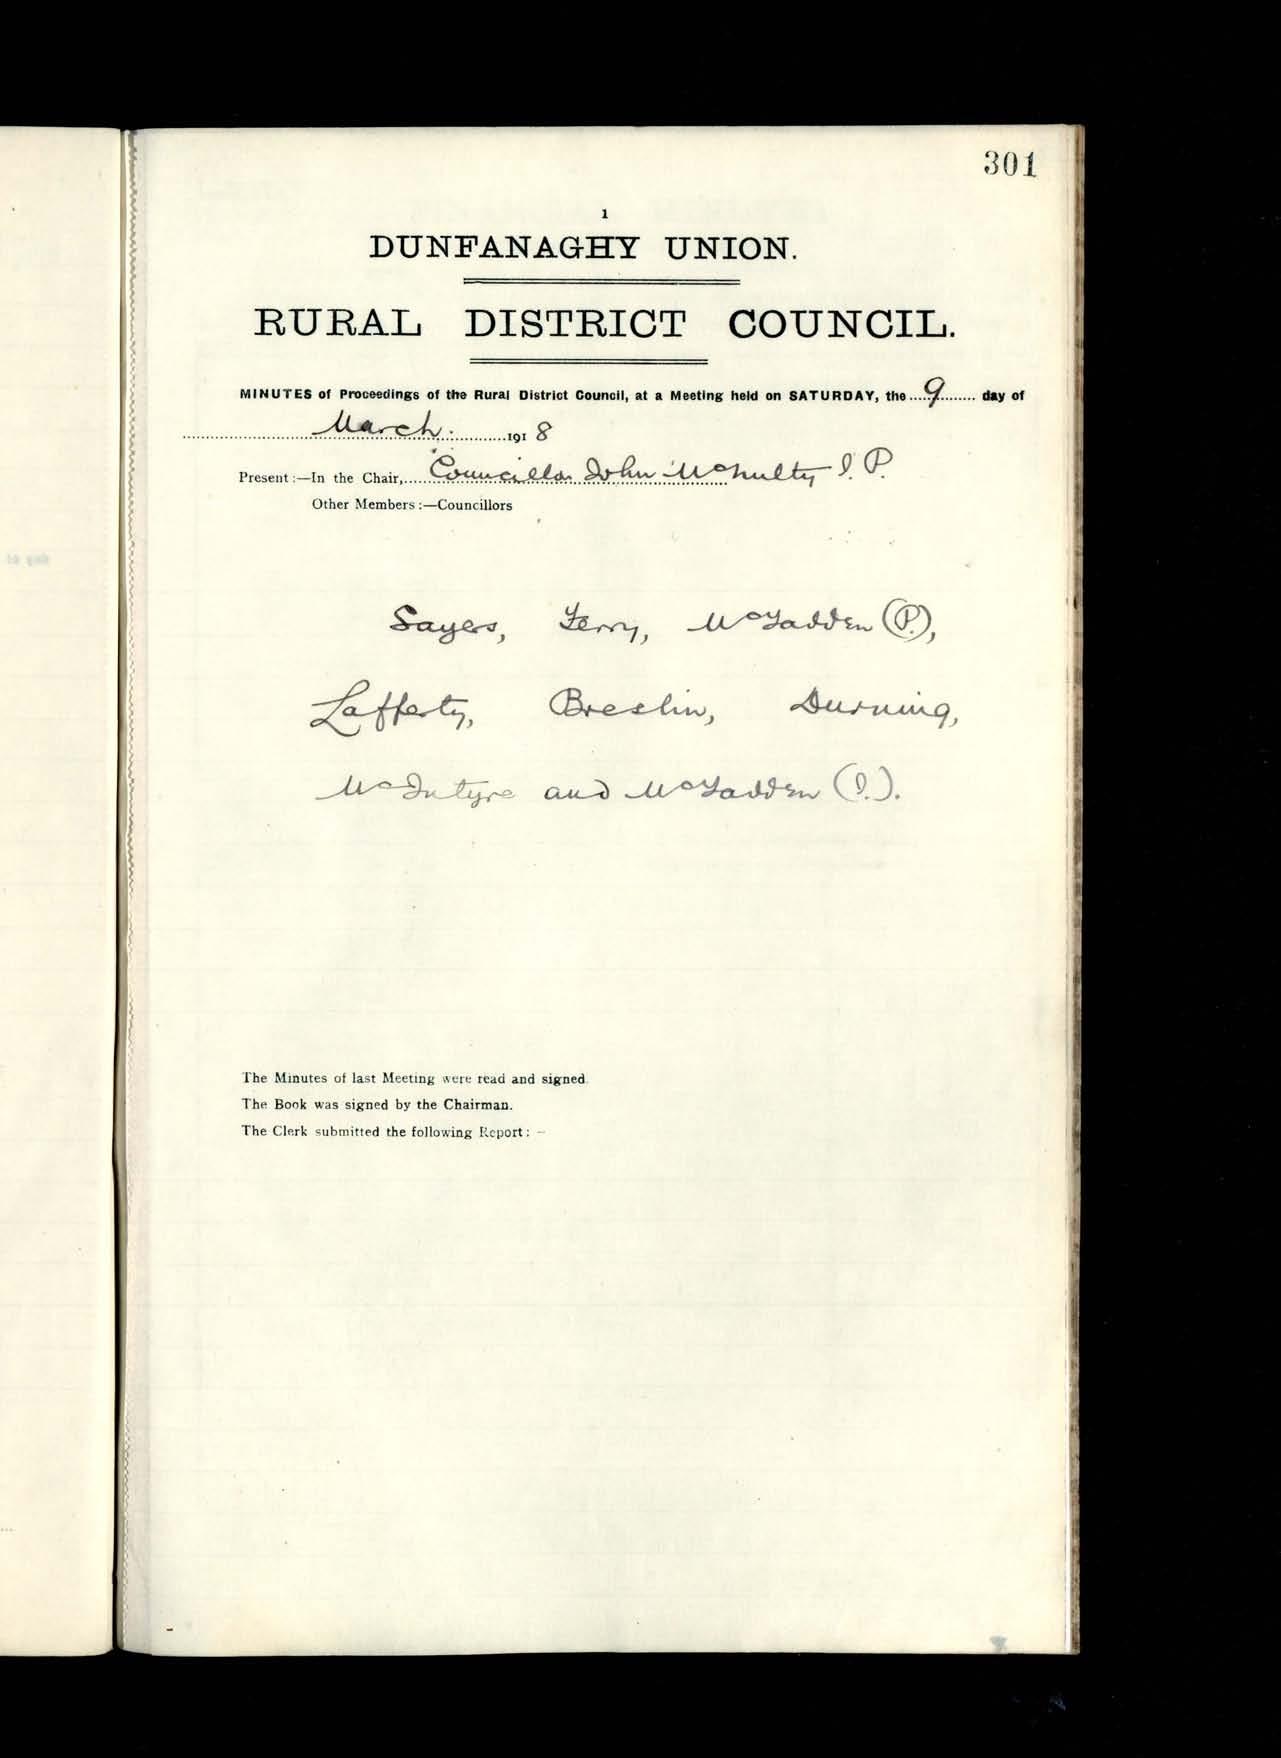 301
1
DUNFANAGHY UNION.
RURAL DISTRICT COUNCIL.
MINUTES of Proceedings of the Rural District Council, at a Meeting held on SATURDAY, the 9 day of
March. 1918
Present:—In the Chair, Councillor John McNulty J. P.
Other Members:—Councillors
Sayers, Ferry, McFadden (P.),
Lafferty, Breslin, Durning,
McIntyre and McFadden (J.).
The Minutes of last Meeting were read and signed.
The Book was signed by the Chairman.
The Clerk submitted the following Report: –